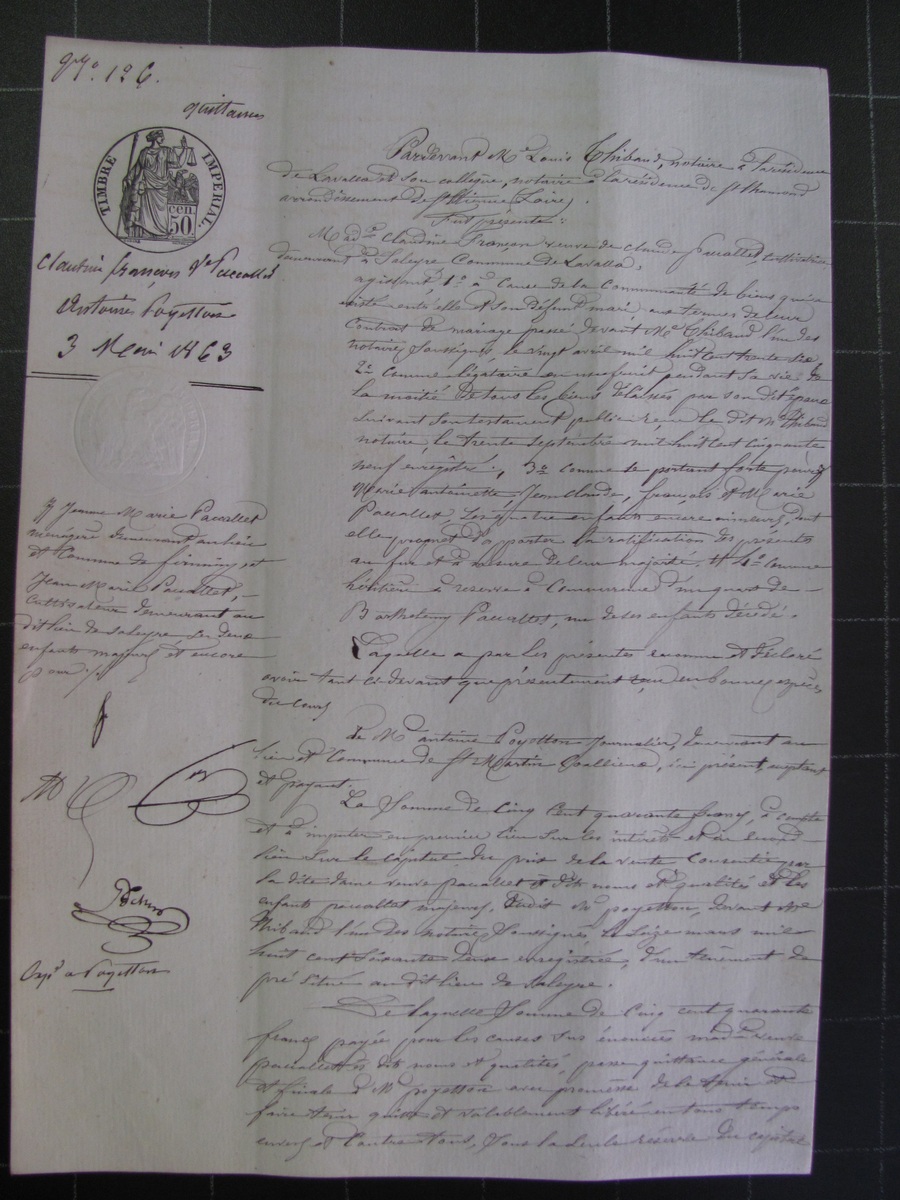 quittance
TIMBRE IMPERIAL
50 cen
Pardevant Me Louis Thibaud, notaire à la résidence
de Lavalla et son collègue, notaire à la résidence de St Chamond
arrondissement de St Etienne Loire.
Fut présente :
Made Claudine Françon veuve de Claude Paccallet,
demeurant à Saleyre Commune de Lavalla,
agissant, 1o à cause de la Communauté de biens qui a
existé entr'elle et son défunt mari, aux termes de leur
Contrat de mariage passé devant Me Thibaud l'un des
notaires soussignés, le vingt avril mil huit cent trente
2o comme légataire en usufruit pendant sa vie de
la moitié de tous les biens délaissés par son dit époux
suivant son testament public reçu le dit Me Thibaud
notaire, le trente septembre mil huit cent cinquante
neuf enregistré, 3o comme se portant forte pour
Marie antoinette, Jean Claude, françois et Marie
Paccallet, ses quatre enfants encore mineurs, dont
elle promet d'apporter la ratification des présentes
au fur et à mesure de leur majorité. # 4o comme
héritière à réserve à Concurrence d'un quart de
Barthelemy Paccallet, un de ses enfants décédé.
Laquelle a par les présentes reconnu et déclaré
avoir tant ci-devant que présentement reçu en bonnes espèces
du cours
de Mr antoine Poyetton Journalier, demeurant au
lieu et Commune de St Martin Coallieux, ici présent, acceptant
et payant.
La Somme de Cinq Cent quarante francs, à compte
et à imputer en premier lieu sur les intérêts et en second
lieu sur le capital du prix de la vente Consentie par
la dite dame veuve paccallet ès dits noms et qualités et les
enfants paccallet majeurs, audit Mr poyetton, devant Me
Thibaud l'un des notaires soussignés, le seize mars mil
huit cent soixante deux enregistrée, d'un tènement de
pré situé audit lieu de Saleyre.
De laquelle Somme de Cinq cent quarante
francs payée pour les causes sus énoncées made veuve
paccallet ès dits noms et qualités, passe quittance générale
et finale à Mr poyetton avec promesse de le tenir et
faire tenir quitte et valablement libéré en tous temps
envers et Contre tous, sous la seule réserve du capital
Claudine françon Ve Paccallet
Antoine Poyetton
3 Mai 1863
# Jeanne Marie Paccallet
ménagère demeurant au lieu
et Commune de firminy et
Jean Marie Paccallet,
Cultivateur demeurant au
dit lieu de Saleyre les deux
enfants majeurs et encore
pour
a Poyetton